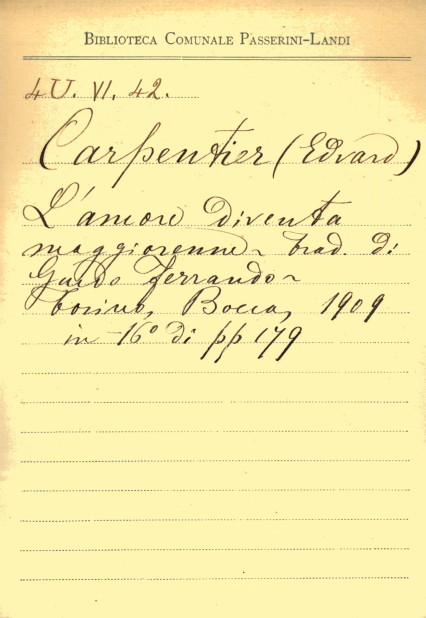 BIBLIOTECA COMUNALE PASSERINI-LANDI
4U. VI. 42.
Carpentier (Edvard)
L'amore diventa
maggiorenne - trad. di
Guido Ferrando -
Torino, Bocca, 1909
in -16° di pp 179